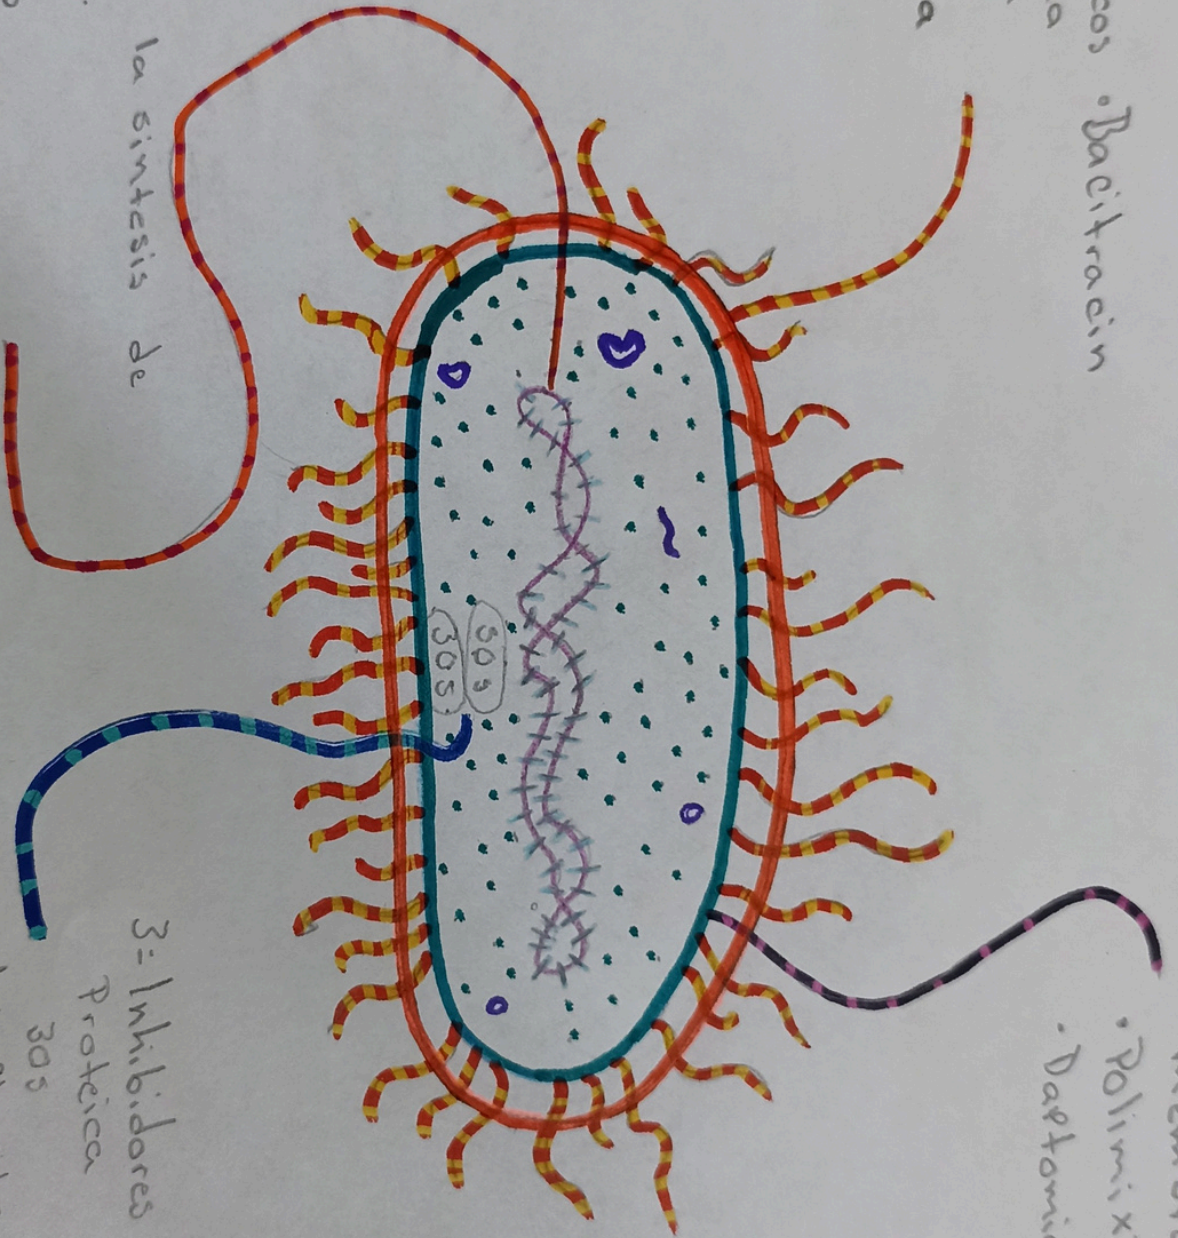 • Bacitracin
la sintesis de
50s
30s
• Polimix
• Daptomi
3= Inhibidores
Proteica
30s